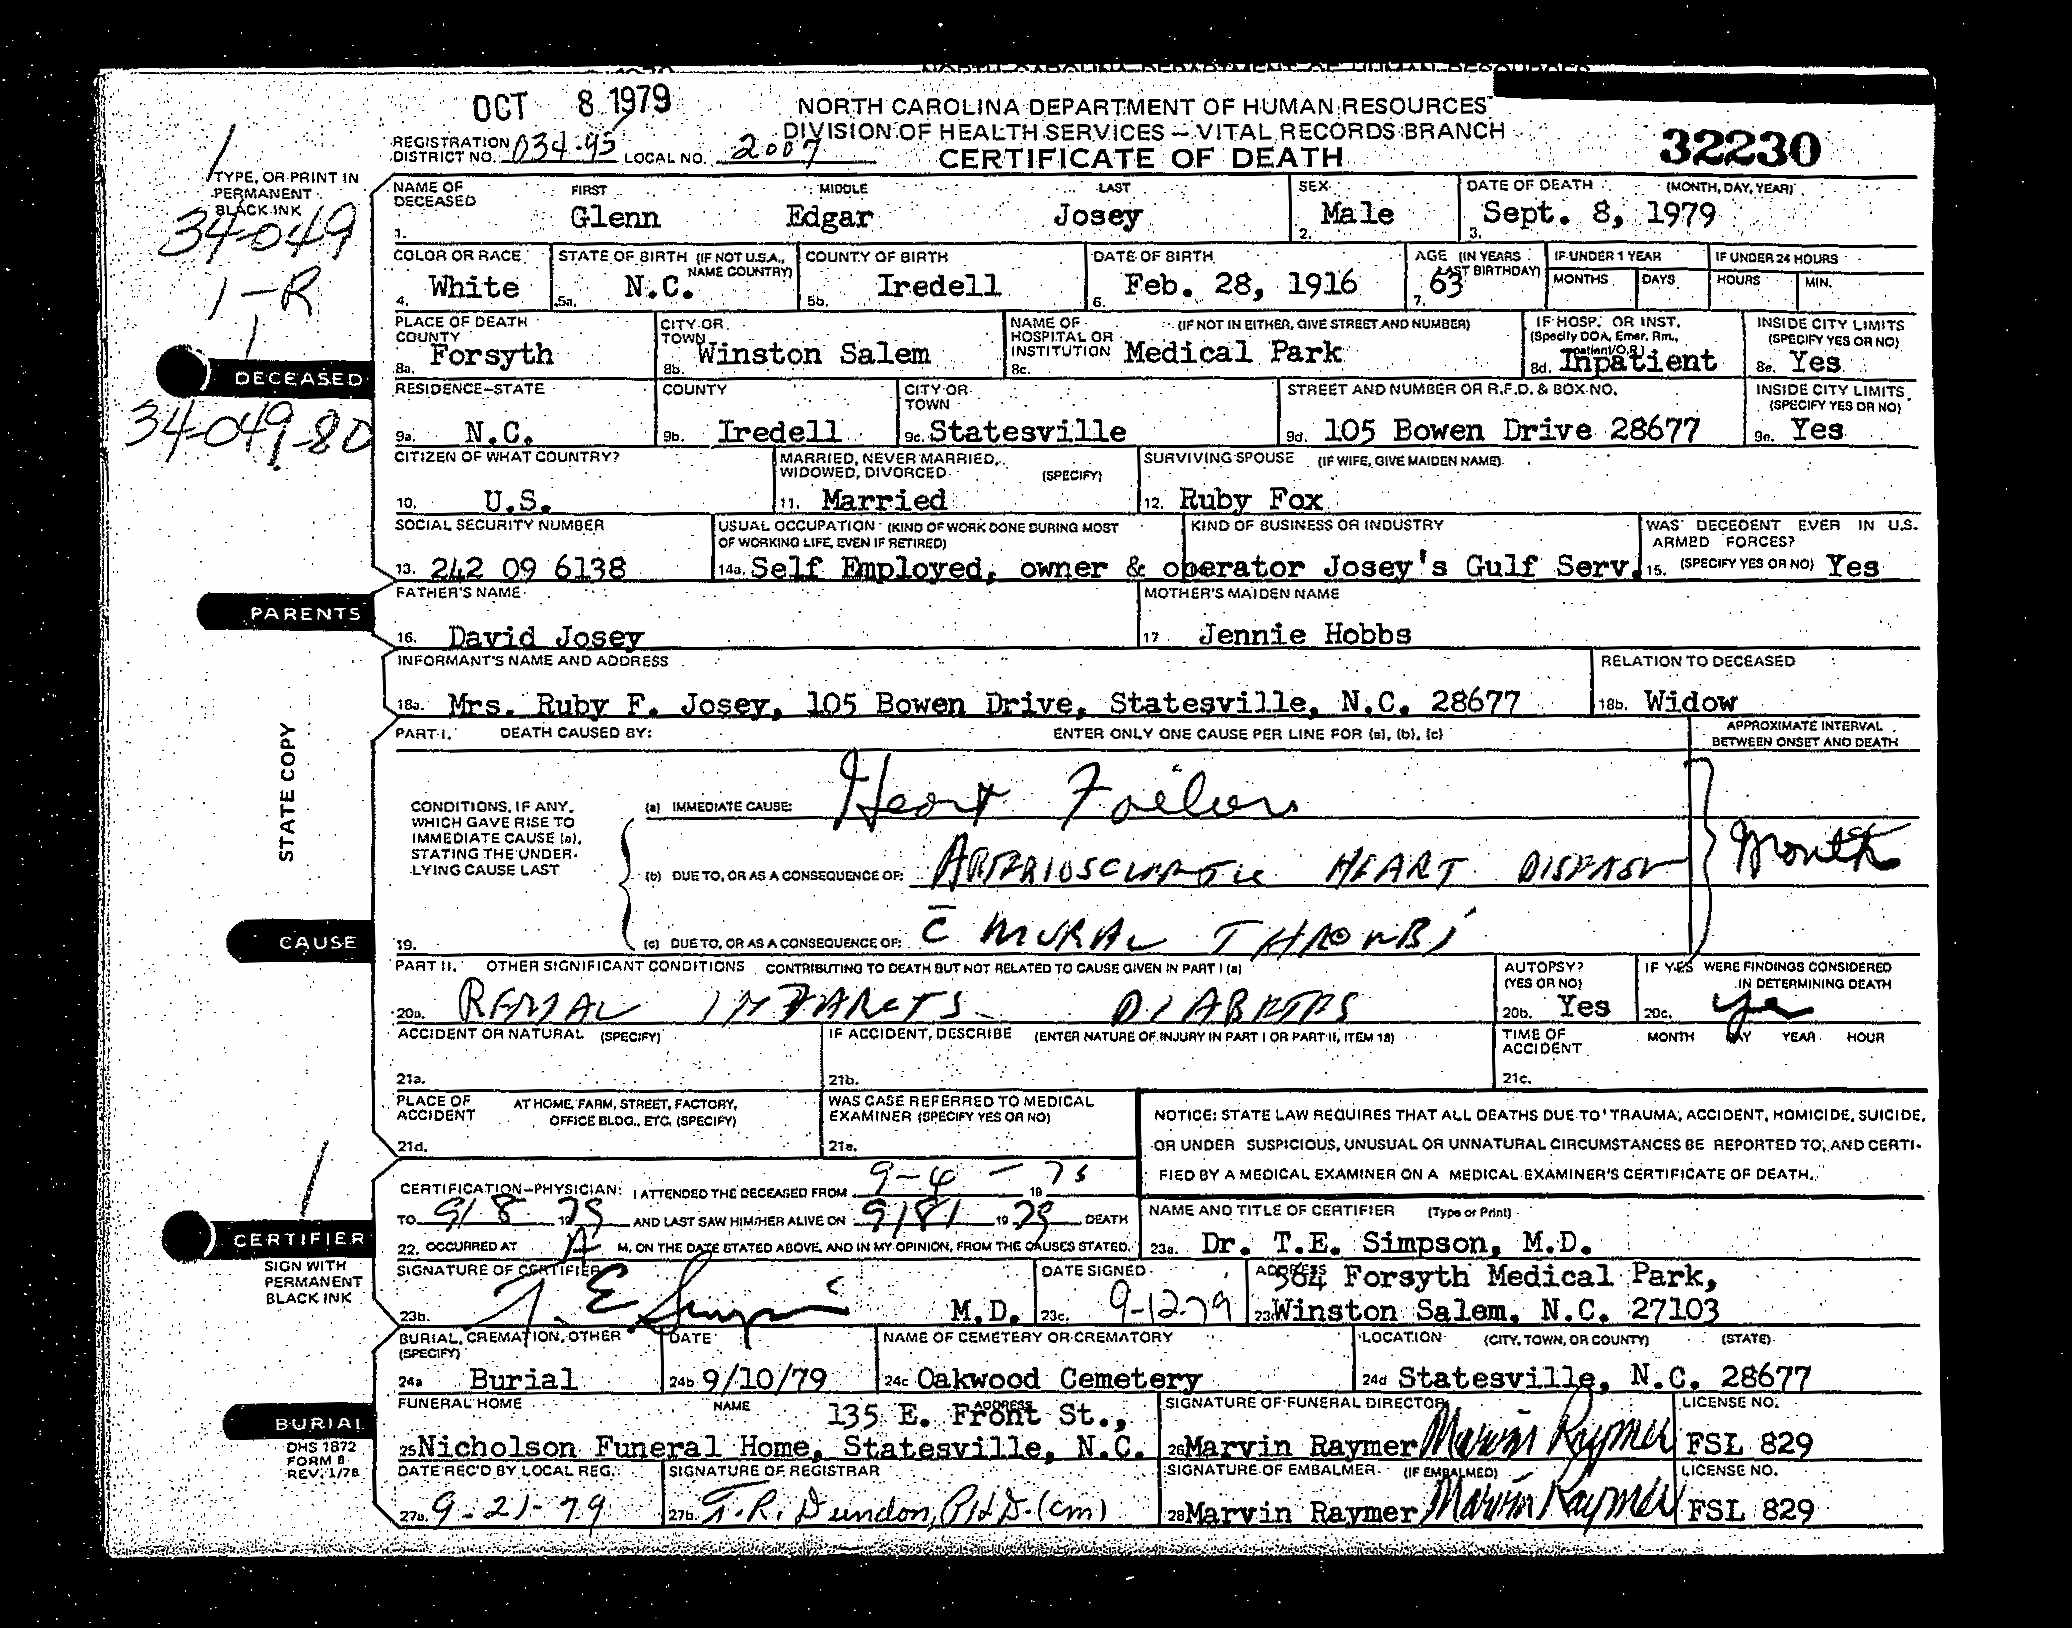 OCT 8 1979
NORTH CAROLINA DEPARTMENT OF HUMAN RESOURCES
DIVISION OF HEALTH SERVICES — VITAL RECORDS BRANCH
CERTIFICATE OF DEATH
32230
REGISTRATION DISTRICT NO. 034-95 LOCAL NO. 2007
TYPE, OR PRINT IN PERMANENT BLACK INK
34-049
1-R
DECEASED
34-049-80
NAME OF DECEASED FIRST MIDDLE LAST SEX DATE OF DEATH (MONTH, DAY, YEAR)
1. Glenn Edgar Josey 2. Male 3. Sept. 8, 1979
COLOR OR RACE STATE OF BIRTH (IF NOT U.S.A., NAME COUNTRY) COUNTY OF BIRTH DATE OF BIRTH AGE (IN YEARS LAST BIRTHDAY) IF UNDER 1 YEAR IF UNDER 24 HOURS
MONTHS DAYS HOURS MIN.
4. White 5a. N.C. 5b. Iredell 6. Feb. 28, 1916 7. 63
PLACE OF DEATH COUNTY CITY OR TOWN NAME OF HOSPITAL OR INSTITUTION (IF NOT IN EITHER, GIVE STREET AND NUMBER) IF HOSP. OR INST. (Specify DOA, Emer. Rm., Inpatient/O.P.) INSIDE CITY LIMITS (SPECIFY YES OR NO)
8a. Forsyth 8b. Winston Salem 8c. Medical Park 8d. Inpatient 8e. Yes
RESIDENCE—STATE COUNTY CITY OR TOWN STREET AND NUMBER OR R.F.D. & BOX NO. INSIDE CITY LIMITS (SPECIFY YES OR NO)
9a. N.C. 9b. Iredell 9c. Statesville 9d. 105 Bowen Drive 28677 9e. Yes
CITIZEN OF WHAT COUNTRY? MARRIED, NEVER MARRIED, WIDOWED, DIVORCED (SPECIFY) SURVIVING SPOUSE (IF WIFE, GIVE MAIDEN NAME)
10. U.S. 11. Married 12. Ruby Fox
SOCIAL SECURITY NUMBER USUAL OCCUPATION (KIND OF WORK DONE DURING MOST OF WORKING LIFE, EVEN IF RETIRED) KIND OF BUSINESS OR INDUSTRY WAS DECEDENT EVER IN U.S. ARMED FORCES?
13. 242 09 6138 14a. Self Employed, owner & operator Josey's Gulf Serv. 15. (SPECIFY YES OR NO) Yes
PARENTS
FATHER'S NAME MOTHER'S MAIDEN NAME
16. David Josey 17 Jennie Hobbs
INFORMANT'S NAME AND ADDRESS RELATION TO DECEASED
18a. Mrs. Ruby F. Josey, 105 Bowen Drive, Statesville, N.C. 28677 18b. Widow
STATE COPY
PART I. DEATH CAUSED BY: ENTER ONLY ONE CAUSE PER LINE FOR (a), (b), (c) APPROXIMATE INTERVAL BETWEEN ONSET AND DEATH
CONDITIONS, IF ANY, WHICH GAVE RISE TO IMMEDIATE CAUSE (a), STATING THE UNDERLYING CAUSE LAST
(a) IMMEDIATE CAUSE: Heart Failure
(b) DUE TO, OR AS A CONSEQUENCE OF: ARTERIOSCLEROTIC HEART DISEASE
Month
CAUSE
19. (c) DUE TO, OR AS A CONSEQUENCE OF: c̄ MURAL THROMBI
PART II. OTHER SIGNIFICANT CONDITIONS CONTRIBUTING TO DEATH BUT NOT RELATED TO CAUSE GIVEN IN PART I (a) AUTOPSY? (YES OR NO) IF YES WERE FINDINGS CONSIDERED IN DETERMINING DEATH
20a. RENAL INFARCTS DIABETES 20b. Yes 20c. yes
ACCIDENT OR NATURAL (SPECIFY) IF ACCIDENT, DESCRIBE (ENTER NATURE OF INJURY IN PART I OR PART II, ITEM 18) TIME OF ACCIDENT MONTH DAY YEAR HOUR
21a. 21b. 21c.
PLACE OF ACCIDENT AT HOME, FARM, STREET, FACTORY, OFFICE BLDG., ETC. (SPECIFY) WAS CASE REFERRED TO MEDICAL EXAMINER (SPECIFY YES OR NO)
21d. 21e.
NOTICE: STATE LAW REQUIRES THAT ALL DEATHS DUE TO TRAUMA, ACCIDENT, HOMICIDE, SUICIDE,
OR UNDER SUSPICIOUS, UNUSUAL OR UNNATURAL CIRCUMSTANCES BE REPORTED TO, AND CERTI-
FIED BY A MEDICAL EXAMINER ON A MEDICAL EXAMINER'S CERTIFICATE OF DEATH.
CERTIFICATION—PHYSICIAN: I ATTENDED THE DECEASED FROM 9-4- 19
TO 9/8 19 AND LAST SAW HIM/HER ALIVE ON 9/8/ 19 DEATH
22. OCCURRED AT A M, ON THE DATE STATED ABOVE, AND IN MY OPINION, FROM THE CAUSES STATED.
CERTIFIER
SIGN WITH PERMANENT BLACK INK
NAME AND TITLE OF CERTIFIER (Type or Print)
23a. Dr. T.E. Simpson, M.D.
SIGNATURE OF CERTIFIER DATE SIGNED ADDRESS 504 Forsyth Medical Park,
23b. T. E. Simpson M.D. 23c. 9-12-79 23d Winston Salem, N.C. 27103
BURIAL, CREMATION, OTHER (SPECIFY) DATE NAME OF CEMETERY OR CREMATORY LOCATION (CITY, TOWN, OR COUNTY) (STATE)
24a Burial 24b 9/10/79 24c Oakwood Cemetery 24d Statesville, N.C. 28677
BURIAL
DHS 1872
FORM 8
REV. 1/78
FUNERAL HOME NAME ADDRESS 135 E. Front St., SIGNATURE OF FUNERAL DIRECTOR LICENSE NO.
25 Nicholson Funeral Home, Statesville, N.C. 26 Marvin Raymer Marvin Raymer FSL 829
DATE REC'D BY LOCAL REG. SIGNATURE OF REGISTRAR SIGNATURE OF EMBALMER (IF EMBALMED) LICENSE NO.
27a. 9-21-79 27b. T.R. Dundon, PH.D. (cm) 28 Marvin Raymer Marvin Raymer FSL 829